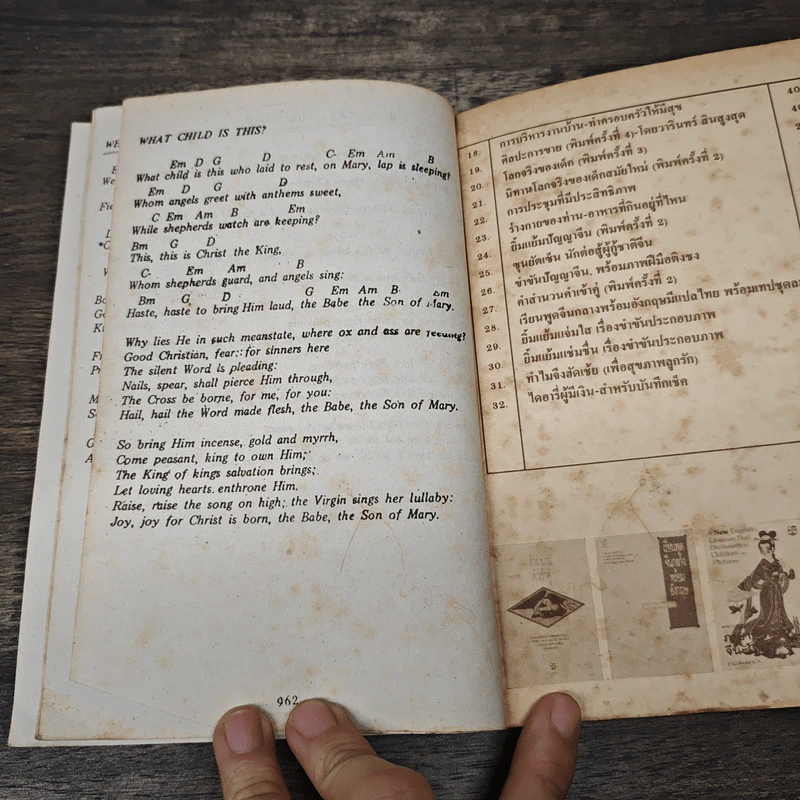 WHAT CHILD IS THIS?
Em D G D C- Em Am B
What child is this who laid to rest, on Mary, lap is sleeping?
Em D G D
Whom angels greet with anthems sweet,
C Em Am B Em
While shepherds watch are keeping?
Bm G D
This, this is Christ the King,
C- Em Am B
Whom shepherds guard, and angels sing:
Bm G D G Em Am B Em
Haste, haste to bring Him laud, the Babe the Son of Mary.
Why lies He in such meanstate, where ox and ass are feeding?
Good Christian, fear:: for sinners here
The silent Word is pleading:
Nails, spear, shall pierce Him through,
The Cross be borne, for me, for you:
Hail, hail the Word made flesh, the Babe, the Son of Mary.
So bring Him incense, gold and myrrh,
Come peasant, king to own Him;
The King of kings salvation brings;
Let loving hearts enthrone Him.
Raise, raise the song on high; the Virgin sings her lullaby:
Joy, joy for Christ is born, the Babe, the Son of Mary.
962
18. การบริหารงานบ้าน-ทำครอบครัวให้มีสุข
19. ศิลปะการขาย (พิมพ์ครั้งที่ 4)-โดยวารินทร์ สินสูงสุด
20. โลกจริงของเด็ก (พิมพ์ครั้งที่ 3)
21. นิทานโลกจริงของเด็กสมัยใหม่ (พิมพ์ครั้งที่ 2)
22. การประชุมที่มีประสิทธิภาพ
23. ร่างกายของท่าน-อาหารที่กินอยู่ที่ไหน
24. ยิ้มแย้มปัญญาจีน (พิมพ์ครั้งที่ 2)
25. ซุนยัดเซ็น นักต่อสู้ผู้กู้ชาติจีน
26. ขำขันปัญญาจีน, พร้อมภาพฝีมือดิงชง
27. คำสำนวนคำเข้าคู่ (พิมพ์ครั้งที่ 2)
28. เรียนพูดจีนกลางพร้อมอังกฤษมีแปลไทย พร้อมเทปชุดละ
29. ยิ้มแย้มแจ่มใส เรื่องขำขันประกอบภาพ
30. ยิ้มแย้มแช่มชื่น เรื่องขำขันประกอบภาพ
31. ทำไมจึงฮัดเช้ย (เพื่อสุขภาพลูกรัก)
32. ไดอารี่ผู้มีเงิน-สำหรับบันทึกเช็ค
40
เรียนพูด
จีนกลาง
พร้อม
อังกฤษ
New